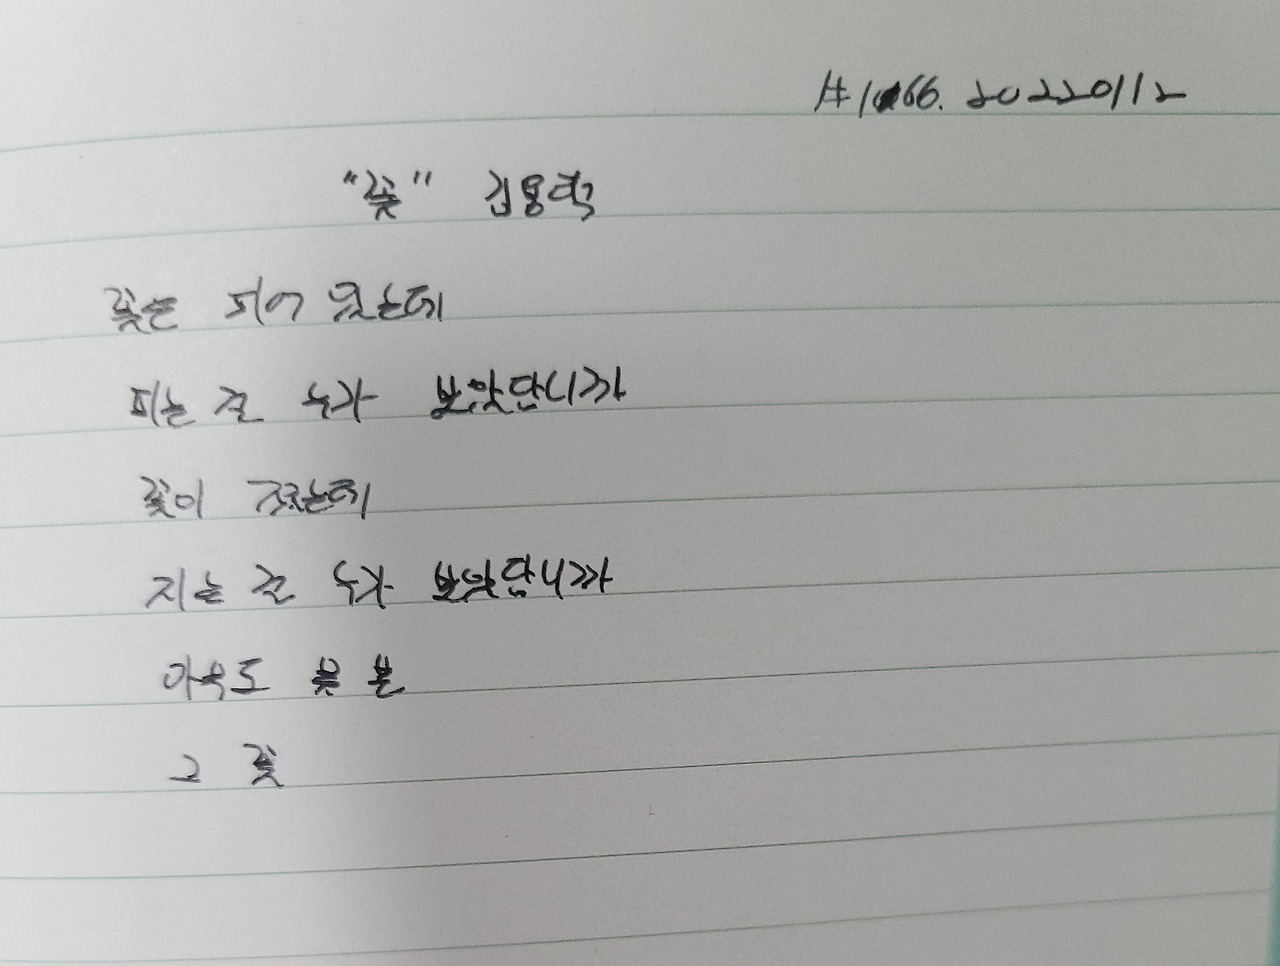 20220112
"꽃" 김용택
꽃은 피어 있는데
피는 걸 누가 보았단니까
꽃이 졌는데
지는 걸 누가 보았답니까
아무도 못 본
그 꽃